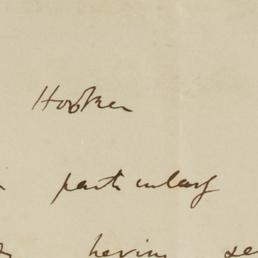 Hooker
particularly
having se